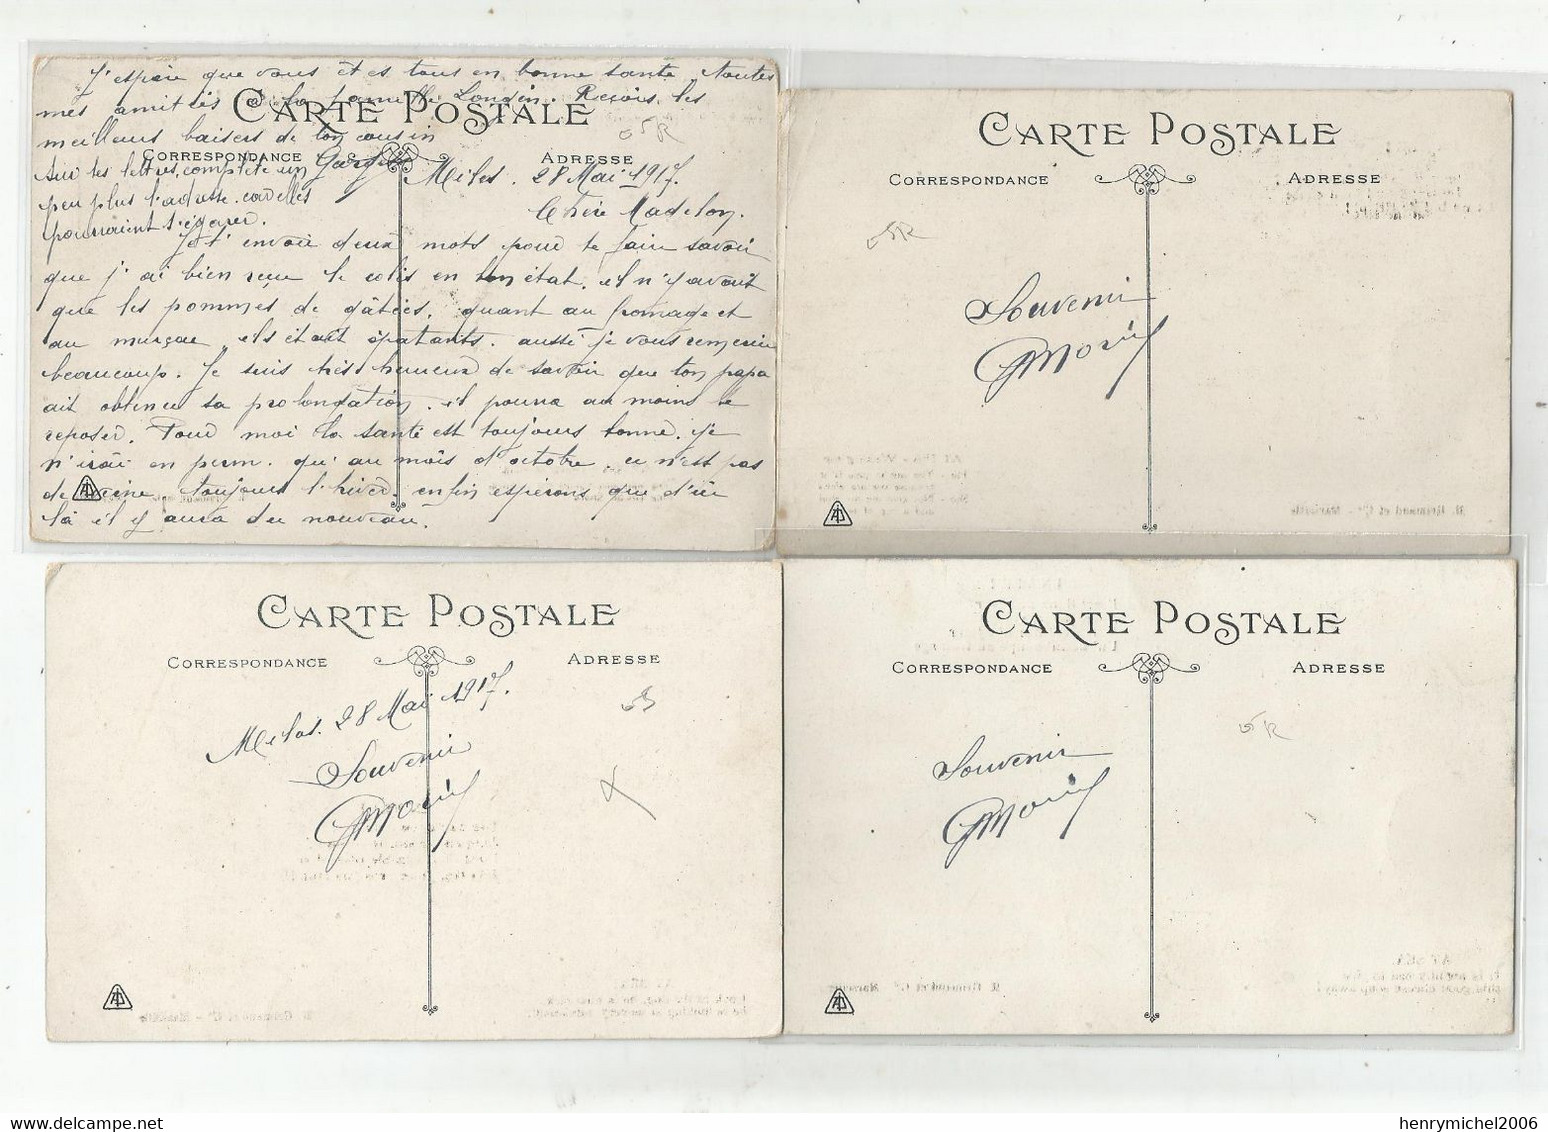 J'espère que vous êtes tous en bonne santé. Toutes
mes amitiés à la famille Longin. Reçois les
meilleurs baisers de ton cousin
CARTE POSTALE
CORRESPONDANCE
ADRESSE
Sur tes lettres, complète un
peu plus l'adresse. car elles
pourraient s'égarer.
Milos. 28 Mai 1917.
Chère Madelon.
Je t'envoie deux mots pour te faire savoir
que j'ai bien reçu le colis en bon état. il n'y avait
que les pommes de gâtées. quant au fromage et
au  ils était épatants. aussi je vous remercie
beaucoup. Je suis très heureux de savoir que ton papa
ait obtenu sa prolongation. il pourra au moins se
reposer. Pour moi la santé est toujours bonne. je
n'irai en perm. qu'au mois d'octobre. ce n'est pas
de veine, toujours l'hiver. enfin espérons que d'ici
là il y aura du nouveau.
CARTE POSTALE
CORRESPONDANCE
ADRESSE
Souvenir
CARTE POSTALE
CORRESPONDANCE
ADRESSE
Milos. 28 Mai 1917.
Souvenir
CARTE POSTALE
CORRESPONDANCE
ADRESSE
Souvenir
henrymichel2006